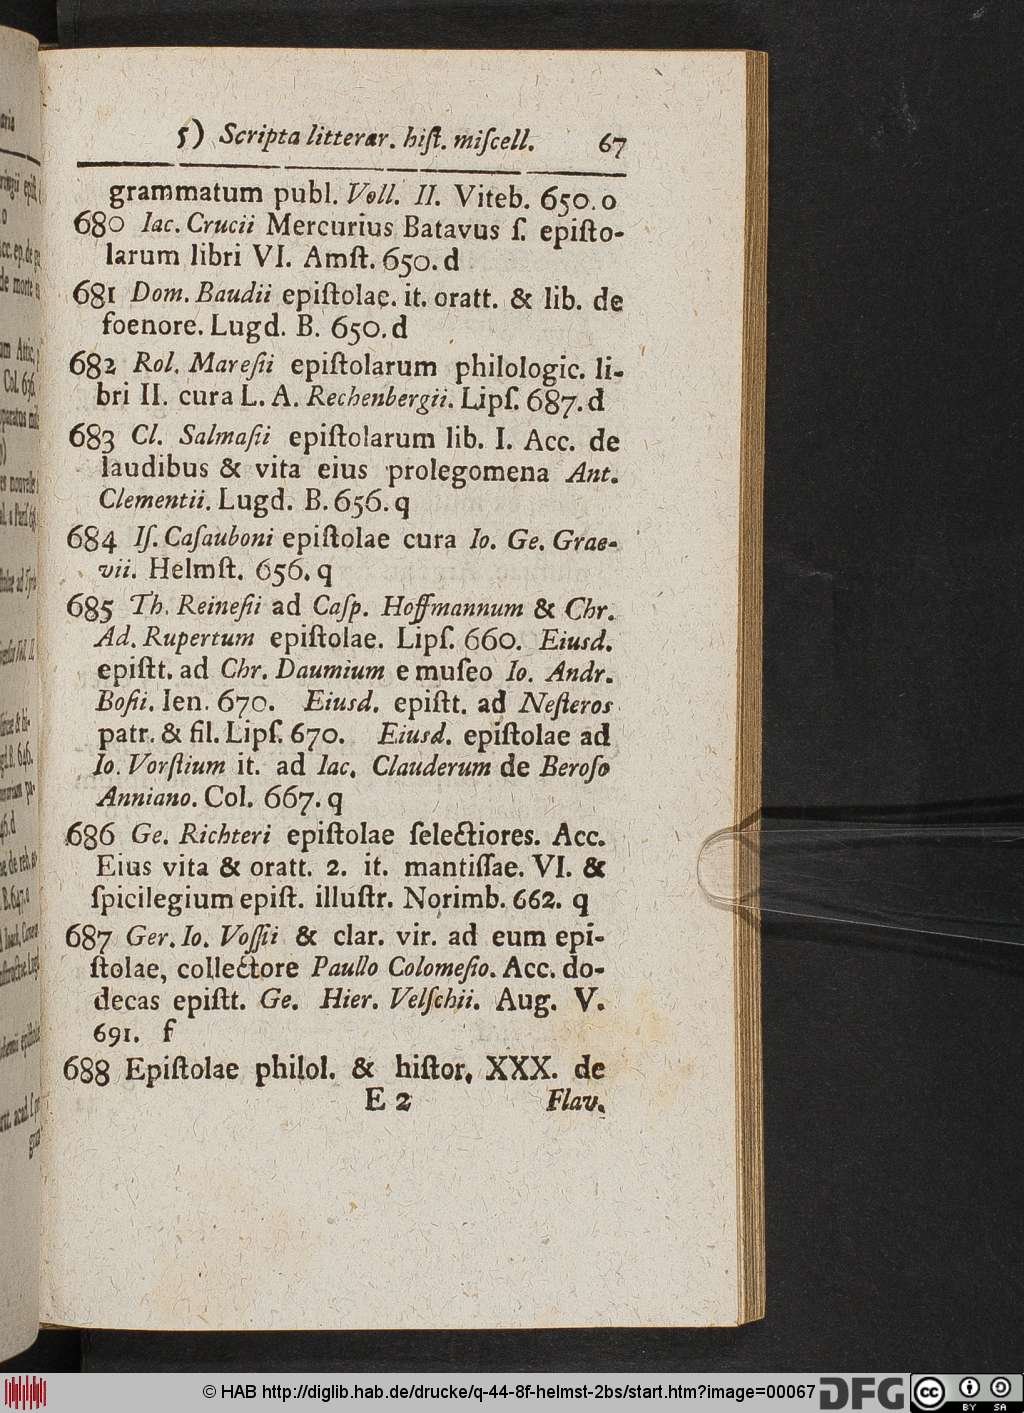 5) Scripta litterar. hiſt. miſcell. 67
grammatum publ. Voll. II. Viteb. 650. o
680 Iac. Crucii Mercurius Batavus ſ. epiſto-
larum libri VI. Amſt. 650. d
681 Dom. Baudii epiſtolae. it. oratt. & lib. de
foenore. Lugd. B. 650. d
682 Rol. Mareſii epiſtolarum philologic. li-
bri II. cura L. A. Rechenbergii. Lipſ. 687. d
683 Cl. Salmaſii epiſtolarum lib. I. Acc. de
laudibus & vita eius prolegomena Ant.
Clementii. Lugd. B. 656. q
684 Iſ. Caſauboni epiſtolae cura Io. Ge. Grae-
vii. Helmſt. 656. q
685 Th. Reineſii ad Caſp. Hoffmannum & Chr.
Ad. Rupertum epiſtolae. Lipſ. 660. Eiusd.
epiſtt. ad Chr. Daumium e muſeo Io. Andr.
Boſii. Ien. 670. Eiusd. epiſtt. ad Neſteros
patr. & fil. Lipſ. 670. Eiusd. epiſtolae ad
Io. Vorſtium it. ad Iac. Clauderum de Beroſo
Anniano. Col. 667. q
686 Ge. Richteri epiſtolae ſelectiores. Acc.
Eius vita & oratt. 2. it. mantiſſae. VI. &
ſpicilegium epiſt. illuſtr. Norimb. 662. q
687 Ger. Io. Voſſii & clar. vir. ad eum epi-
ſtolae, collectore Paullo Colomeſio. Acc. do-
decas epiſtt. Ge. Hier. Velſchii. Aug. V.
691. f
688 Epiſtolae philol. & hiſtor. XXX. de
E 2 Flav.
© HAB http://diglib.hab.de/drucke/q-44-8f-helmst-2bs/start.htm?image=00067
DFG
cc BY SA